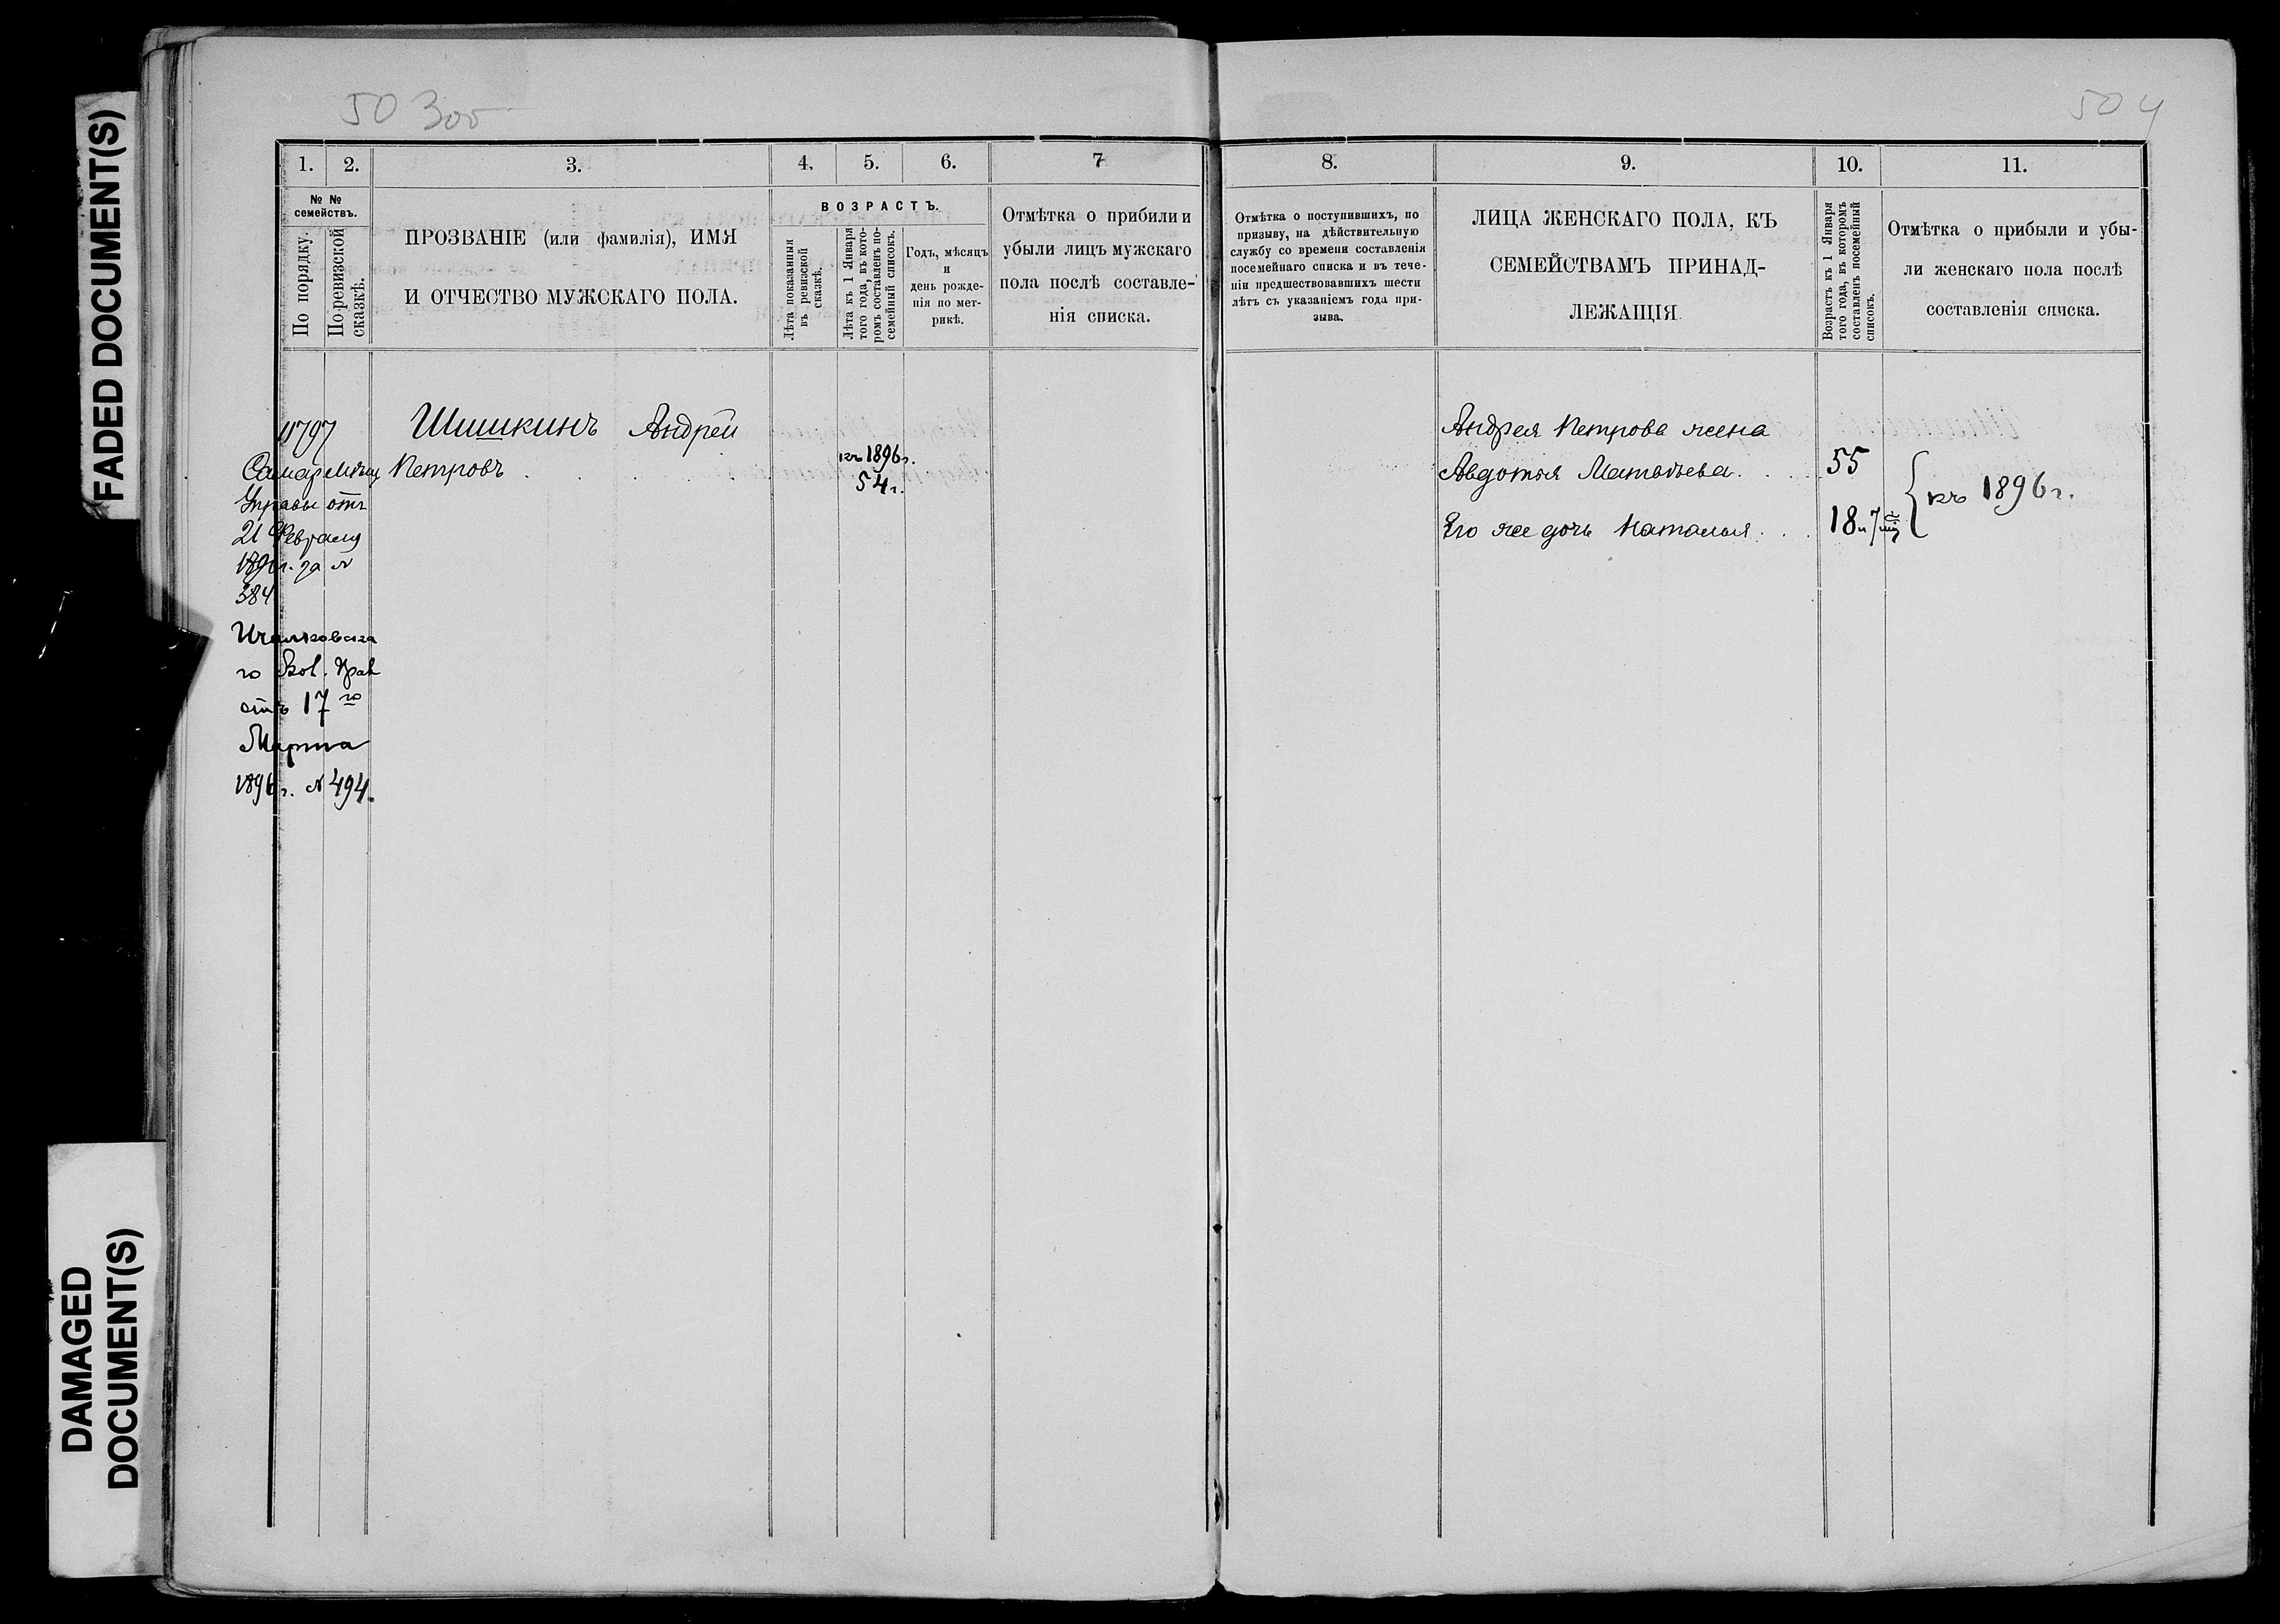 FADED DOCUMENT(S)
50 300
504
1. 2. 3. 4. 5. 6. 7
№ №
семействъ.
По порядку.
По ревизской
сказкѣ.
ПРОЗВАНІЕ (или фамилія), ИМЯ
И ОТЧЕСТВО МУЖСКАГО ПОЛА.
ВОЗРАСТЪ.
Лѣта показанныя
въ ревизской
сказкѣ.
Лѣта къ 1 Января
того года, въ кото-
ромъ составленъ по-
семейный списокъ.
Годъ, мѣсяцъ
и
день рожде-
нія по мет-
рикѣ.
Отмѣтка о прибыли и
убыли лицъ мужскаго
пола послѣ составле-
нія списка.
1797 Шишкинъ Андрей
Самар Мѣщ Петровъ
къ 1896 г.
54 г.
Управы отъ
21 Февраля
1896 г. за №
384
го Вол. Прав
отъ 17го
Марта
1896 г. № 494.
8. 9. 10. 11.
Отмѣтка о поступившихъ, по
призыву, на дѣйствительную
службу со времени составленія
посемейнаго списка и въ тече-
ніи предшествовавшихъ шести
лѣтъ съ указаніемъ года при-
зыва.
ЛИЦА ЖЕНСКАГО ПОЛА, КЪ
СЕМЕЙСТВАМЪ ПРИНАД-
ЛЕЖАЩІЯ
Возрастъ къ 1 Января
того года, въ которомъ
составленъ посемейный
списокъ.
Отмѣтка о прибыли и убы-
ли женскаго пола послѣ
составленія списка.
Андрея Петрова жена
Авдотья Матвѣева . . . 55
Его же дочь Наталья . . . 18 и 7 мѣ
къ 1896 г.
DAMAGED
DOCUMENT(S)